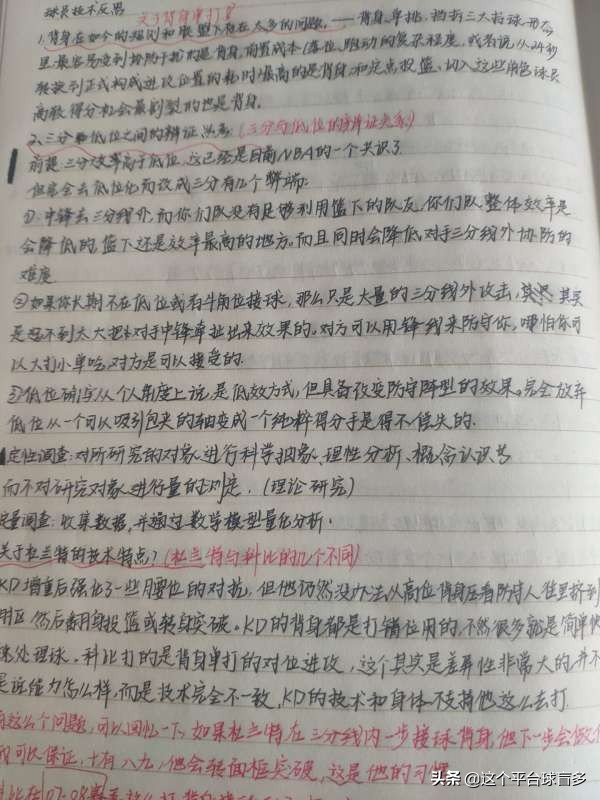 球员技术反思
关于背身单打?
1.背身在如今的规则和联盟下存在太多的问题,——背身、单挑、挡拆三大持球形态
里最容易受到协防干扰的是背身,前置成本(落位、跑动的复杂程度,或者说,从24秒
转换到正式构成进攻位置的耗时)最高的是背身,和定点投篮、切入这些角色球员
高效得分机会最割裂的也是背身。
2.三分和低位之间的辩证关系:(三分与低位的辩证关系)
前提:三分效率高于低位,这已经是目前NBA的一个共识了
但完全去低位化而改成三分有几个弊端:
①.中锋去三分线外,而你们队没有足够利用篮下的队友,你们队整体效率是
会降低的,篮下还是效率最高的地方。而且同时会降低对手三分线外协防的
难度
②如果你长期不在低位或者牛角位接球,那么只是大量的三分线外攻击,其实
是起不到太大把对手中锋牵扯出来效果的。对方可以用锋线来防守你,哪怕你可
以大打小单吃,对方是可以接受的.
③低位确实从个人角度上说,是低效方式,但具备改变防守阵型的效果。完全放弃
低位从一个可以吸引包夹的轴变成一个纯粹得分手是得不偿失的.
定性调查:对所研究的对象进行科学抽象、理性分析、概念认识等
而不对研究对象进行量的测定。(理论研究)
定量调查:收集数据,并通过数学模型量化分析.
关于杜兰特的技术特点?(杜兰特与科比的几个不同)
KD增重后强化了一些用要位的对抗,但他仍然没办法从高位背身压着防守人往里挤到
然后翻身投篮或转身突破。KD的背身都是打错位用的,不然很多就是简单快
速处理球。科比打的是背身单打的对位进攻,这个其实是差异性非常大的,并不
是说能力怎么样,而是技术完全不一致,KD的技术和身体不支持他这么去打.
这么个问题,可以回忆一下,如果杜兰特在三分线内一步接球背身,他下一步会做什
我可以保证,十有八九,他会转面框突破,这是他的习惯
比在07-08赛季
头条 @这个平台球盲多